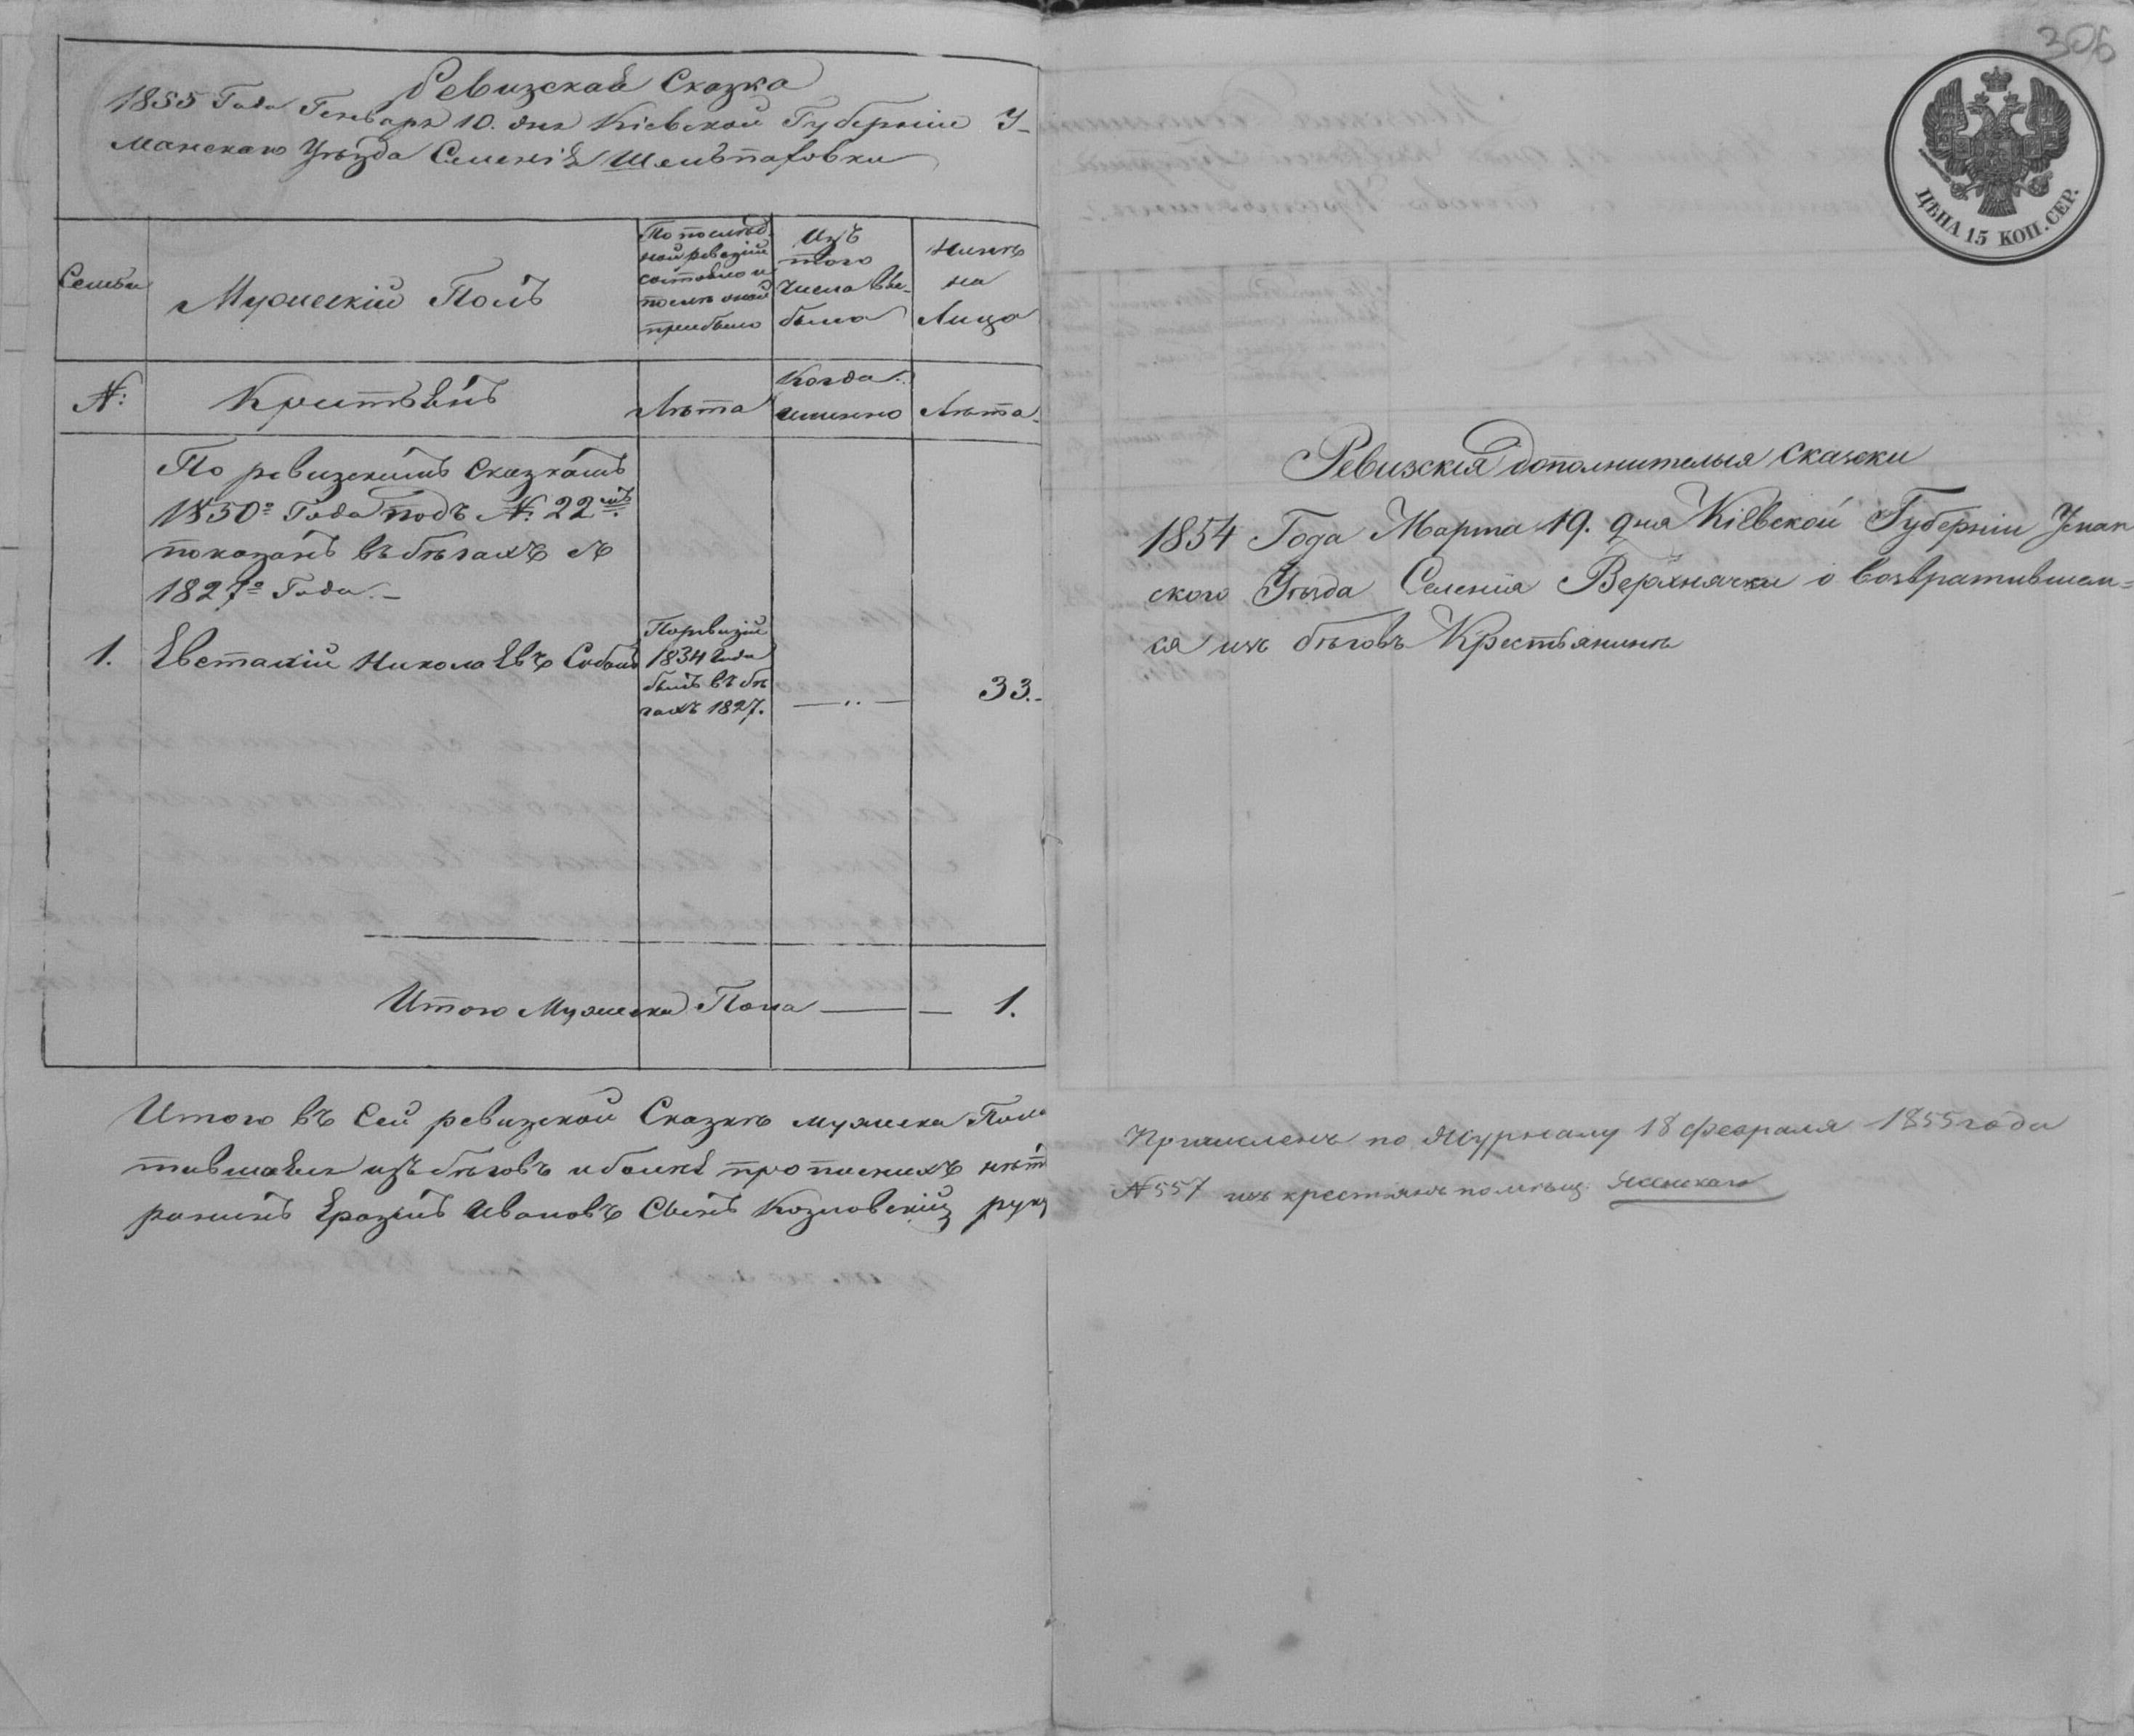 Ревизская Сказка
1855 Года Генваря 10. дня Кіевской Губерніи У-
манскаго Уѣзда Селенія Шельпаховки
Семьи
Мужескій Полъ
По послѣд-
ной ревизіи
состояло и
послѣ оной
прибыло
Изъ
того
Числа вы-
было
Нынѣ
на
Лицо
№:
Крестьянъ
Лѣта
Когда
именно
Лѣта
По ревизскимъ Сказкамъ
1850го Года подъ № 22мъ
показанъ въ бѣгахъ съ
1827го Года.-
1.
Евстахій Николаевъ
По ревизіи
1834 Года
былъ въ бѣ
гахъ 1827.
33.-
Итого Мужеска Пола — — 1.
Итого въ Сей ревизской Сказкѣ мужеска Пола
тившаяся изъ бѣговъ и болѣе прописныхъ нѣтъ
Еразмъ Ивановъ Сынъ Козловскій рук
306
ЦѢНА 15 КОП. СЕР.
Ревизскія дополнителыя скаски
1854 Года Марта 19. дня Кіевской Губерніи Уман
ского Уѣзда Селенія Верхнячки о возвратившем=
ся изъ бѣговъ Крестьянинѣ
Причисленъ по Журналу 18 февраля 1855 года
№ 557 изъ крестьянъ помѣщ.